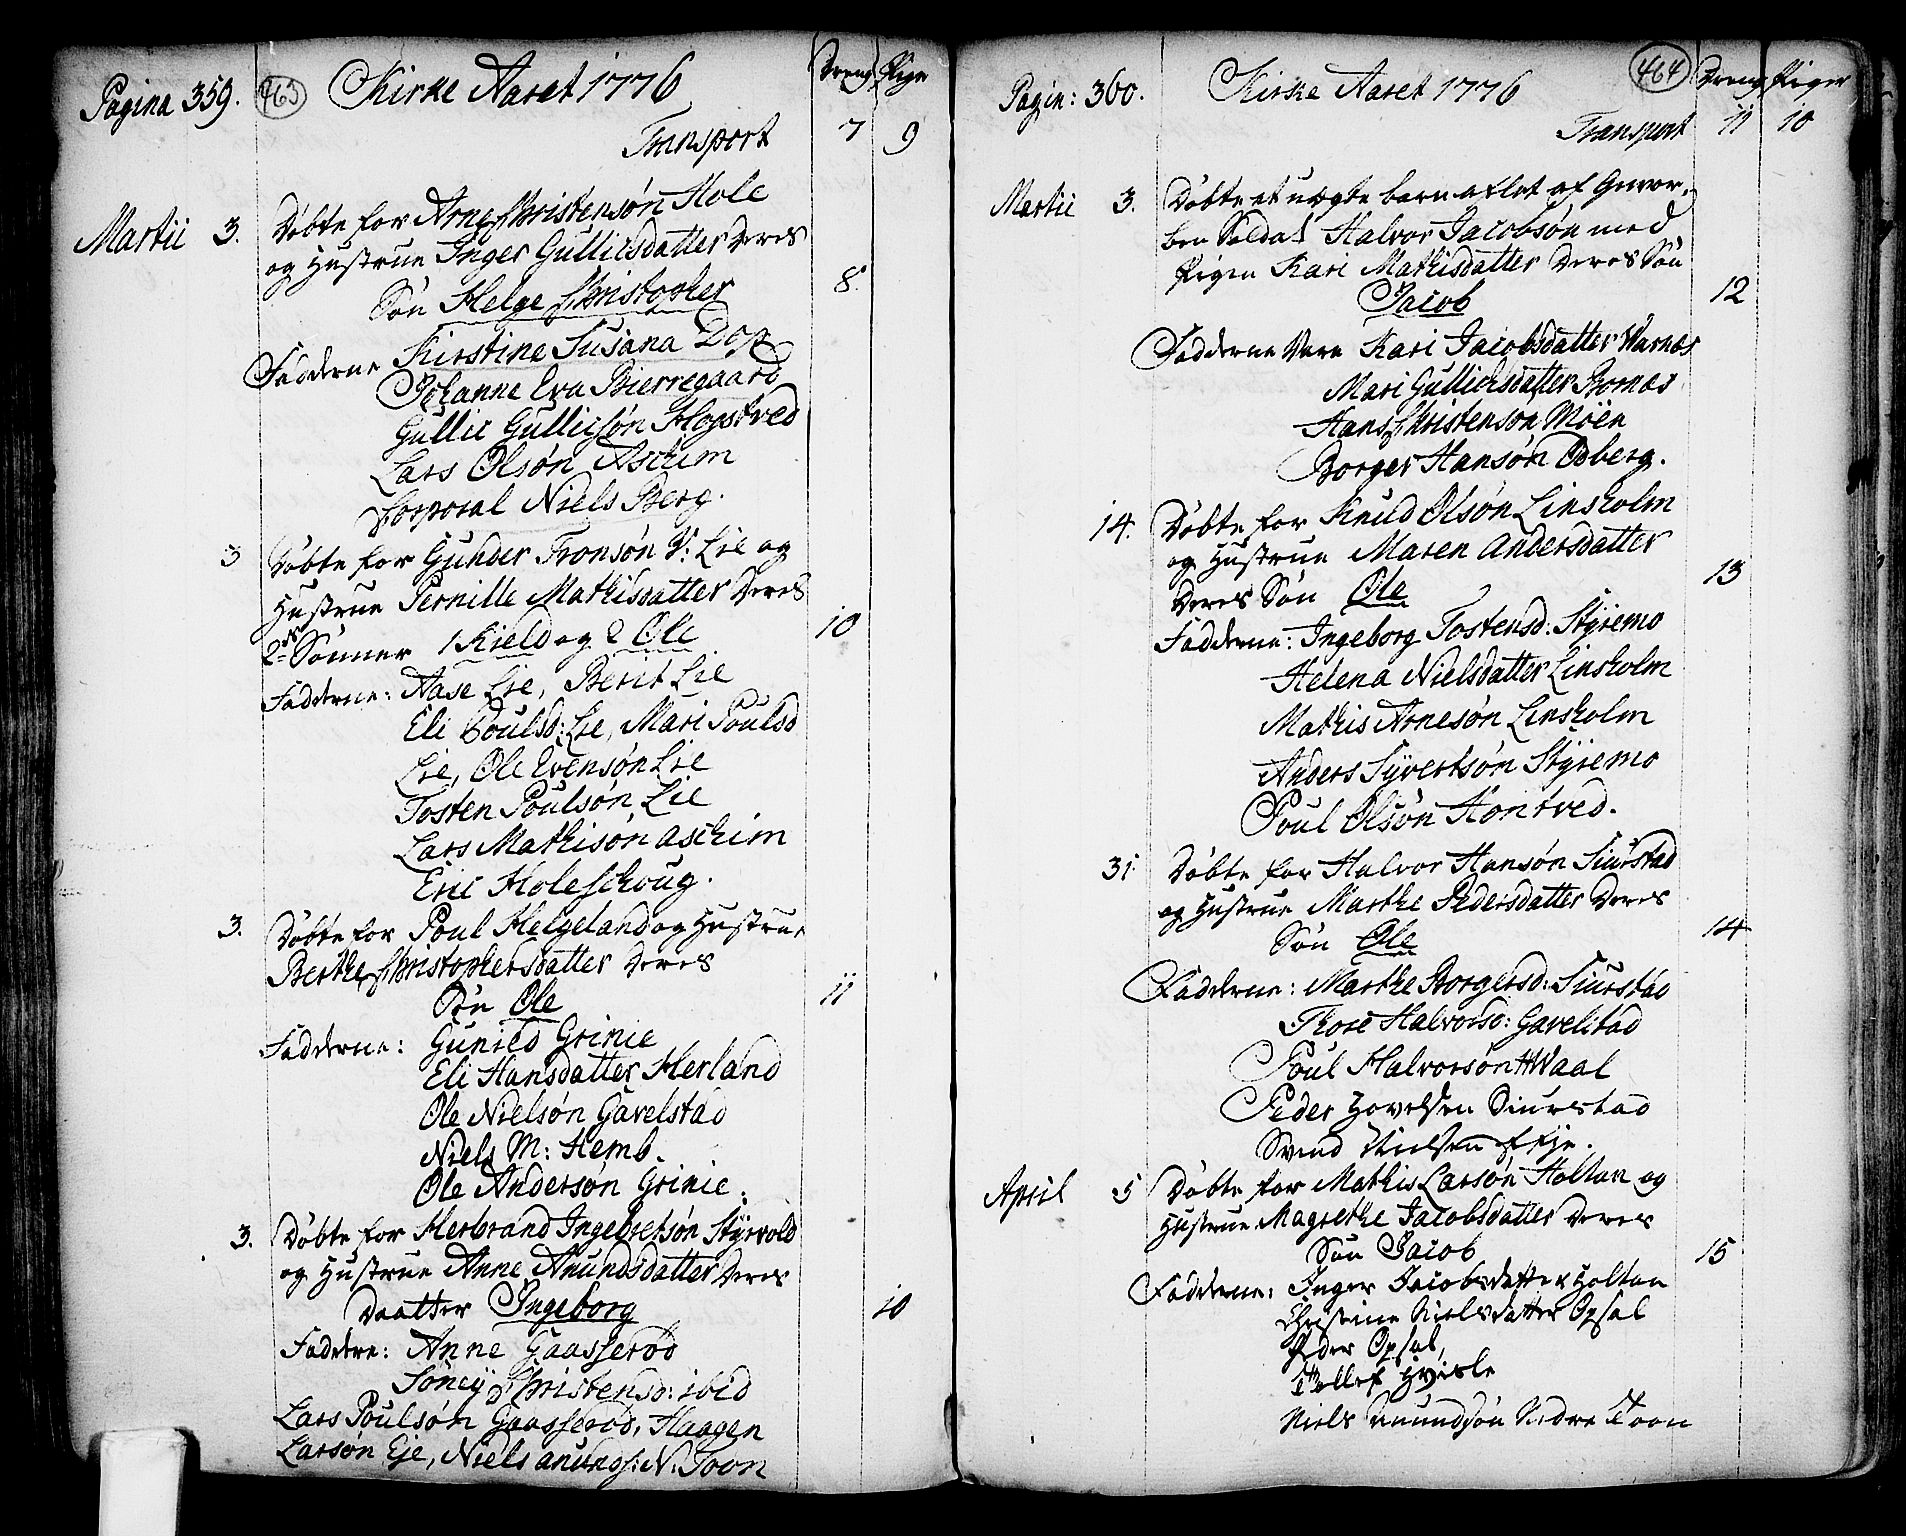 Pagina 359. 463 Kirke Aaret 1776 Dreng Piger
Transport 7 9
Martii 3. Døbte for Arne Christensøn Hole
og Hustrue Inger Gullicsdatter Deres
Søn Helge Christopher 8.
Fadderne Kirstine Susana Dop
Johanne Eva Bierregaard
Gullic Gullicsøn Hogstved
Lars Olsøn Aschim
Corporal Niels Berg.
3 Døbte for Gunder Tronsøn V: Lie og
Hustrue Pernille Mathisdatter Deres
2de Sønner 1 Kield og 2 Ole 10
Fadderne: Aase Lie, Berit Lie
Eli Poulsd: Lie, Mari Poulsd
Lie, Ole Evensøn Lie
Tosten Poulsøn Lie
Lars Mathisøn Aschim
Eric Holeschoug.
3. Døbte for Poul Helgeland og Hustrue
Berthe Christophersdatter Deres
Søn Ole 11
Fadderne: Gunild Grinie
Eli Hansdatter Herland
Ole Nielsøn Gavelstad
Niels M: Hemb.
Ole Andersøn Grinie.
3. Døbte for Herbrand Ingebretsøn Styrvold
og Hustrue Anne Anundsdatter Deres
Daatter Ingeborg 10
Faddere: Anne Gaasserød
Søney Christensd: ibid
Lars Poulsøn Gaasserød, Haagen
Larsøn Eje, Niels Anunds: N: Toon
Pagin: 360. Kirke Aaret 1776 464 Dreng Piger
Transport 11 10
Martii 3. Døbte et uægte barn aflet af Gevor-
ben Soldat Halvor Jacobsøn med
Pigen Kari Mathisdatter Deres Søn
Jacob 12
Fadderne Vare Kari Jacobsdatter Warnæs
Mari Gullichsdatter Bornæs
Hans Christensøn Möen
Borger Hansøn Odberg.
14. Døbte for Knud Olsøn Linsholm
og Hustrue Maren Andersdatter
Deres Søn Ole 13
Fadderne: Ingeborg Tostensd: Styremo
Helena Nielsdatter Linsholm
Mathis Arnesøn Linsholm
Anders Syvertsøn Styremo
Poul Olsøn Hontved.
31 Døbte for Halvor Hansøn Siurstad
og Hustrue Marthe Pedersdatter Deres
Søn Ole 14
Fadderne: Marthe Borgersd: Siurstad
Thore Halvorsd: Gavelstad
Poul Halvorsøn Waal
Peder Hovelsen Siurstad
Svend Nielsen Eje.
April 5 Døbte for Mathis Larsøn Holtan og
Hustrue Magrethe Jacobsdatter Deres
Søn Jacob 15
Fadderne: Inger Jacobsdatter Holtan
Christine Nielsdatter Opsal
Peder Opsal,
Tollef Hvisle
Niels Anundsøn Nedre Toon